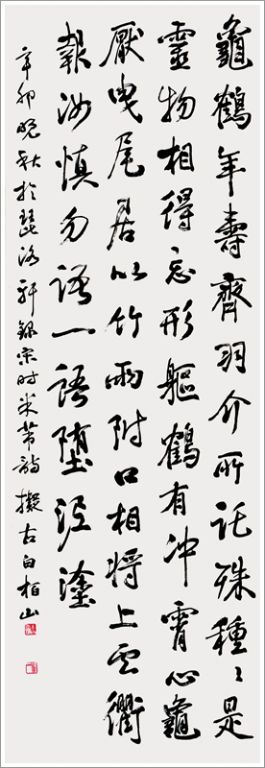 龜鶴年壽齊羽介所託殊種〻是
靈物相得忘形軀鶴有冲霄心龜
厭曳尾居以竹兩附口相將上云衢
報汝慎勿語一語堕泥塗
辛卯晚秋於琵洛軒錄宋时米芾詩擬古白柏山